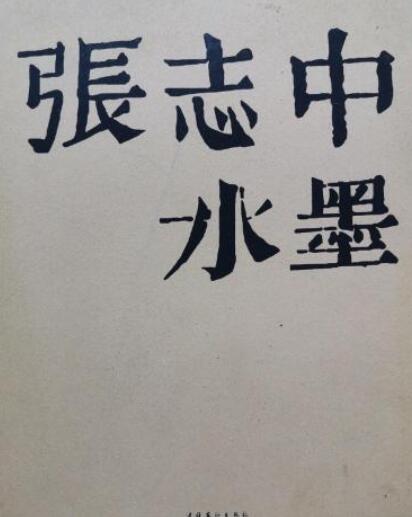 張志中
水墨